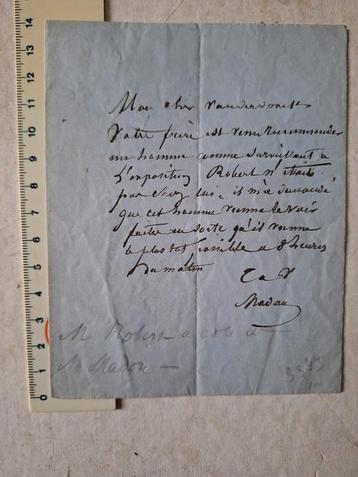 Mon cher Vanderdonckt
Votre frère est venu recommender
un homme comme surveillant a
L'exposition Robert n'etait
pas chez lui, il m'a demandé
que cet homme vienne le voir
faites en sorte qu'il vienne
le plus tot possible a 8 heures
du matin
T a V
Madou
M Robert a
M Madou
14
13
12
11
10
9
8
7
6
5
4
3
2
1
0